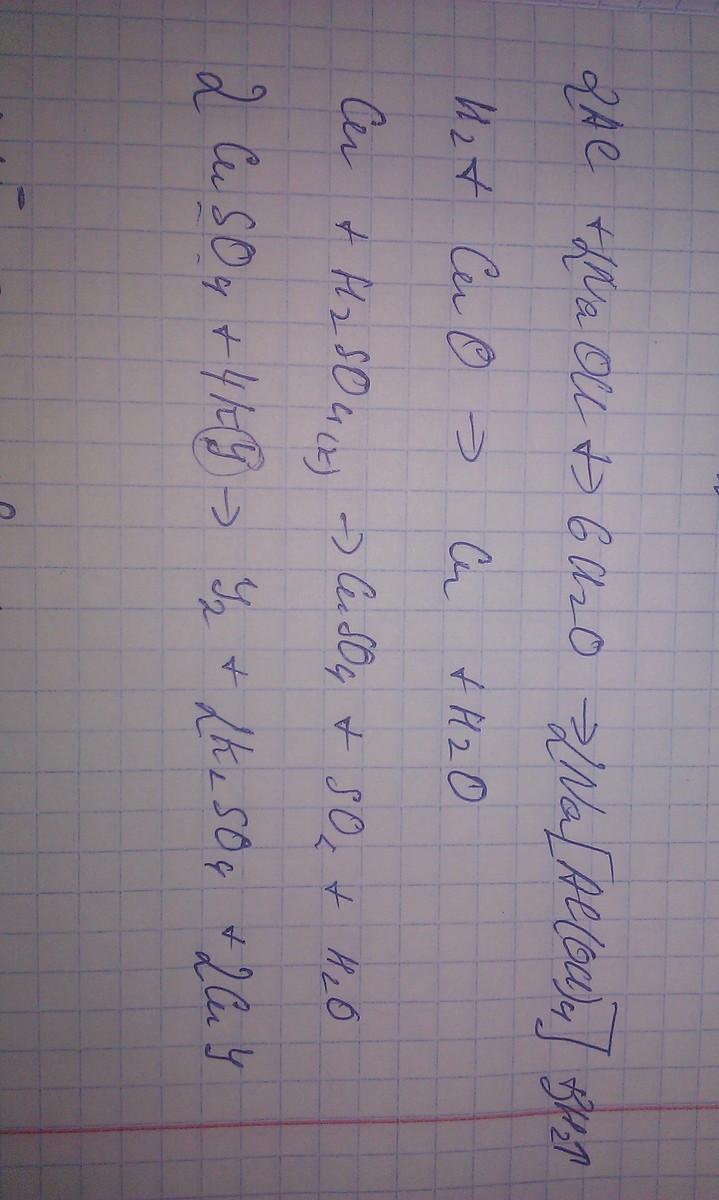 2Al + 2NaOH + → 6H₂O → 2Na[Al(OH)₄] + 3H₂↑
H₂ + CuO → Cu + H₂O
Cu + H₂SO₄(к) → CuSO₄ + SO₂ + H₂O
2CuSO₄ + 4KY → Y₂ + 2K₂SO₄ + 2CuY